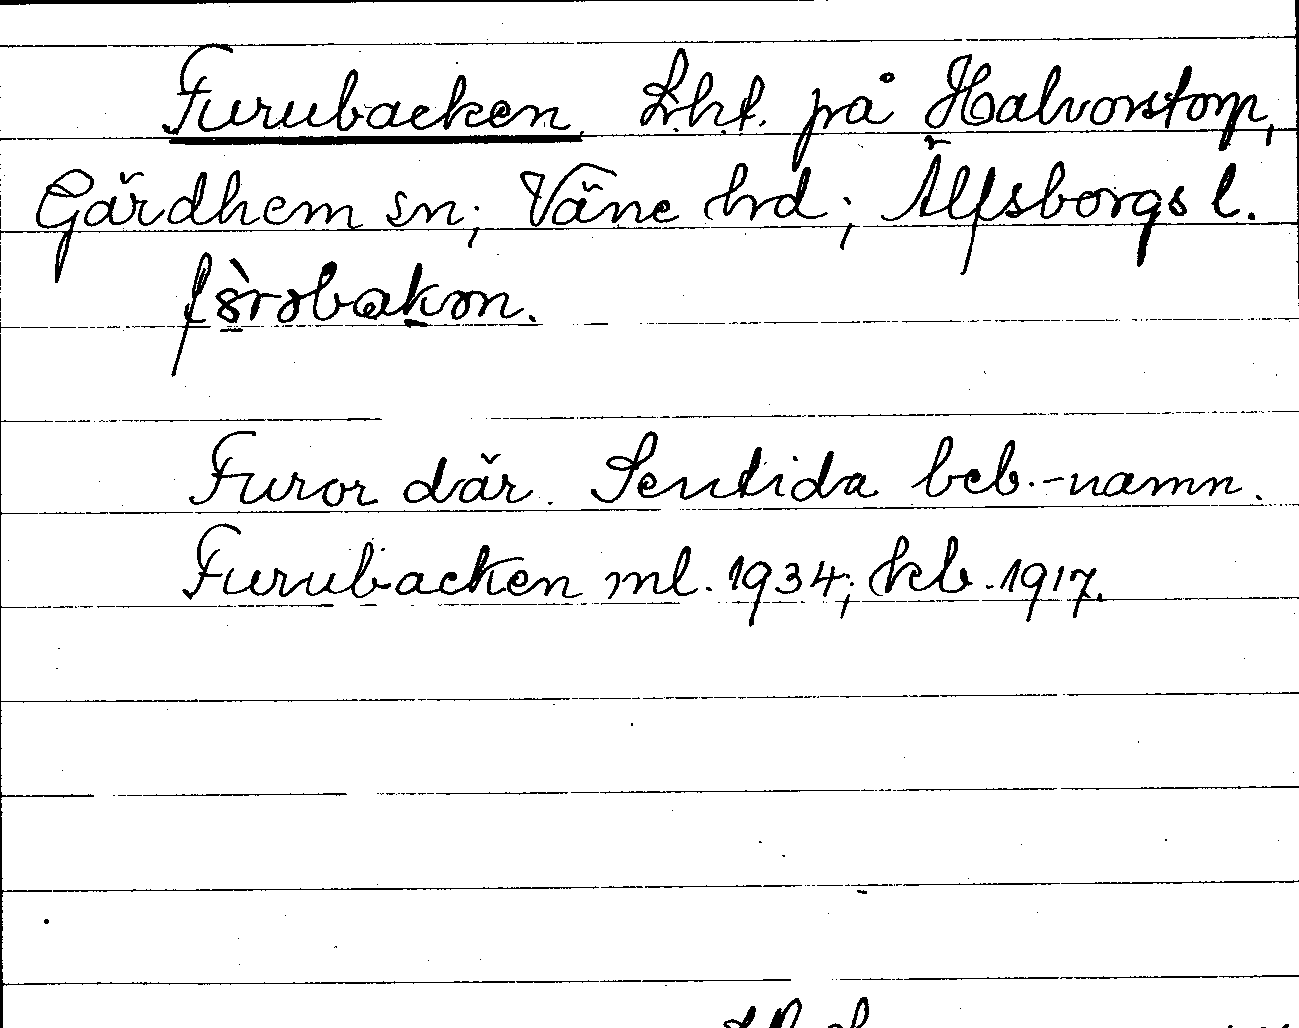 Furubacken. Lht. på Halvorstorp,
Gärdhem sn; Väne hd; Älfsborgs l.
Furor där. Sentida beb.-namn.
Furubacken ml. 1934; kb. 1917.